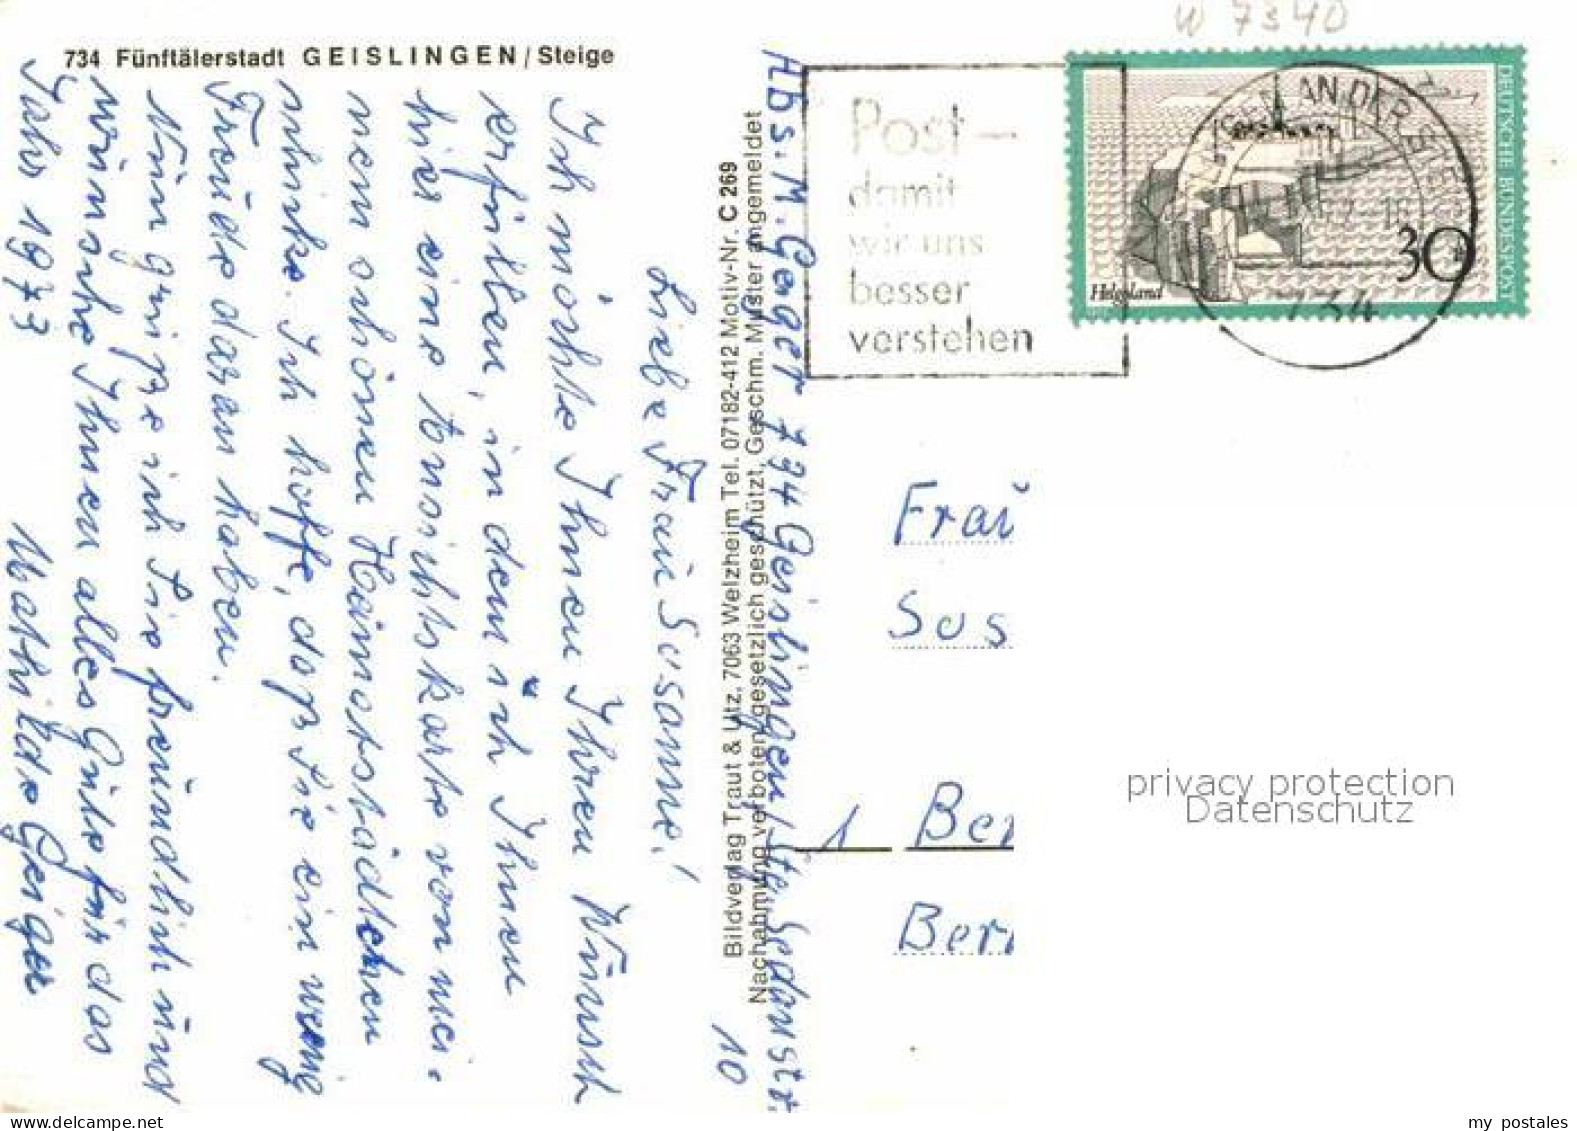 W 7340
734 Fünftälerstadt GEISLINGEN / Steige
Liebe Frau Susanne!
Ich möchte Ihnen Ihren Wunsch
erfüllen, in dem ich Ihnen
hier eine Ansichtskarte von mei-
nem schönen Heimatstädtchen
schicke. Ich hoffe, daß Sie ein wenig
Freude daran haben.
Nun grüße ich Sie freundlich und
wünsche Ihnen alles Gute für das
Jahr 1973
Mathilde Geiger
Bildverlag Traut & Utz, 7063 Welzheim Tel. 07182-412 Motiv-Nr. C 269
Nachahmung verboten, gesetzlich geschützt, Geschm. Muster angemeldet
Abs. M. Geiger 734 Geislingen/Stg. Sedanstr.
10
Post –
damit
wir uns
besser
verstehen
AN DER STEIGE
734
DEUTSCHE BUNDESPOST
Helgoland
30
Frau
Sus
1 Ber
Ber
privacy protection
Datenschutz
my postales